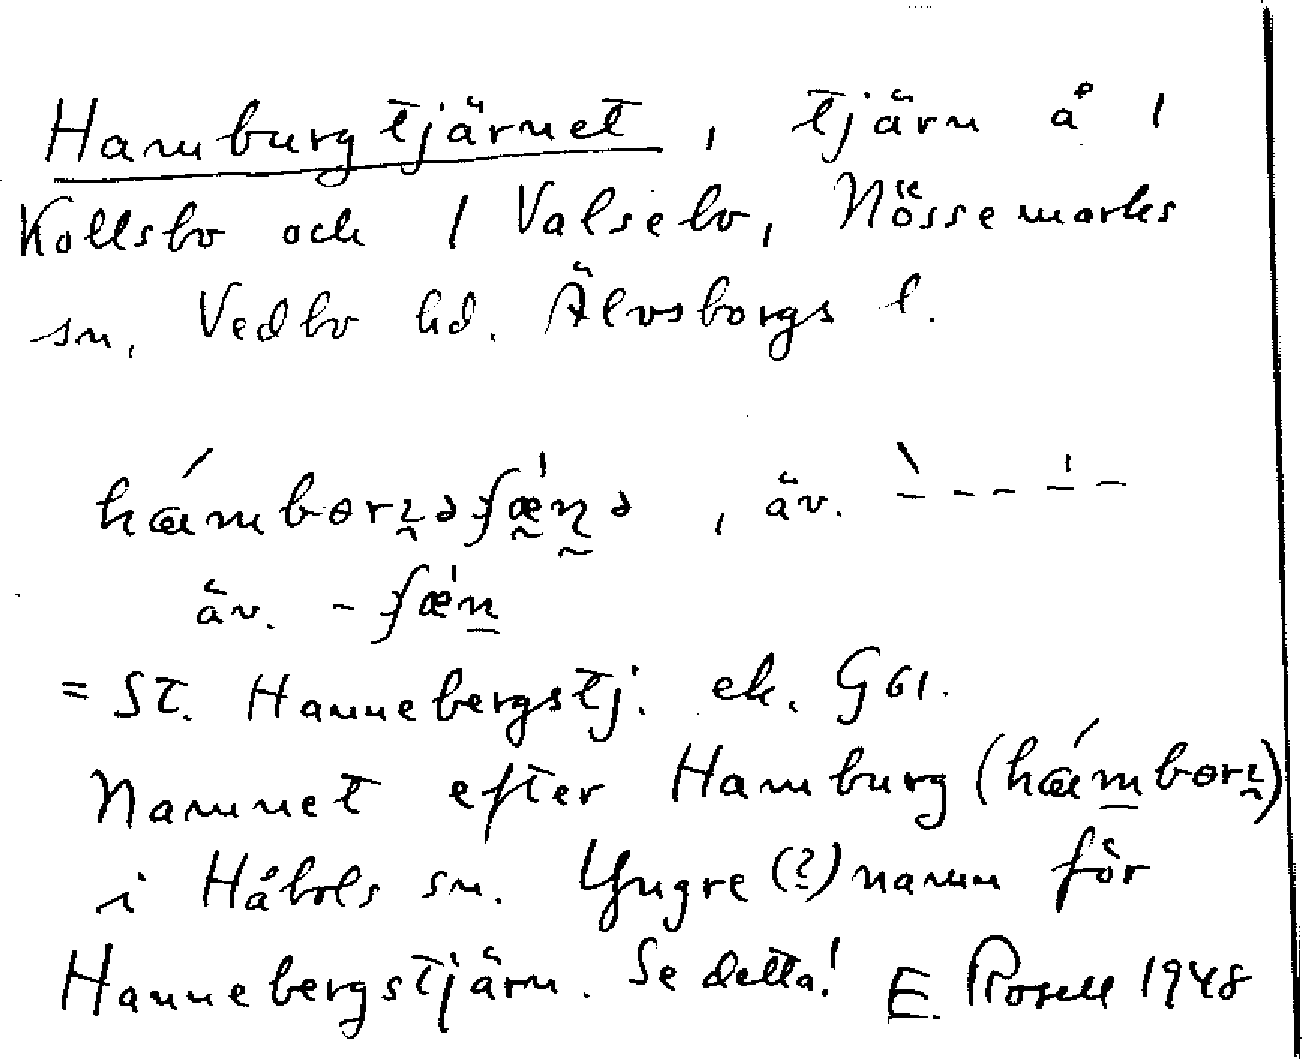 Hamburgtjärnet, tjärn å 1
Kollsbo och 1 Valsebo, Nössemarks
sn, Vedbo hd. Älvsborgs l.
, äv.
äv.
= St. Hannebergstj. ek. G61.
Namnet efter Hamburg
i Håbols sn. Yngre (?) namn för
Hannebergstjärn. Se detta! E. Rosell 1948